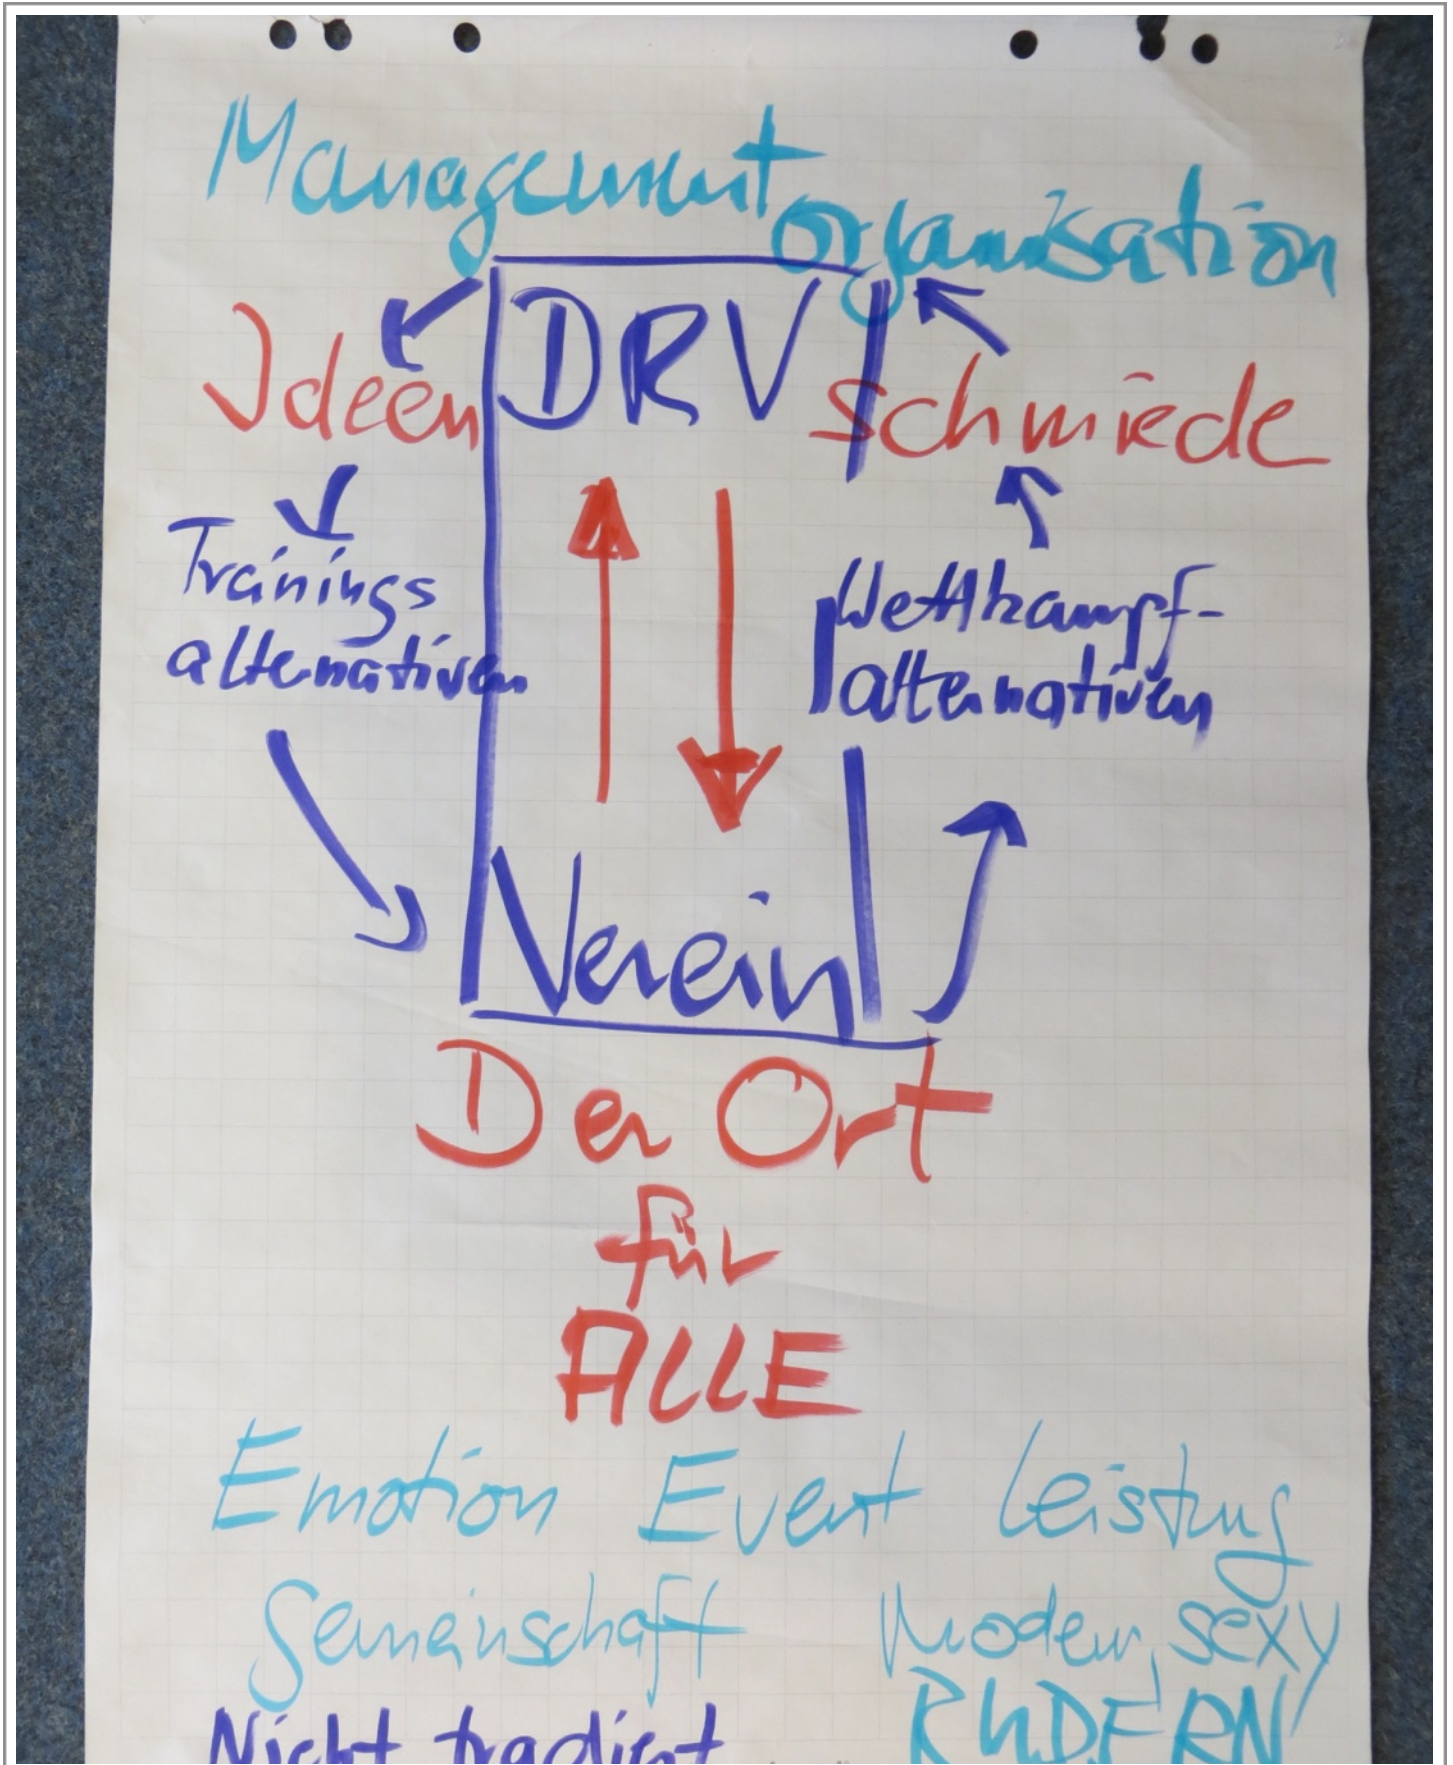 Management
organisation
DRV
Ideen
schmiede
Trainings
alternativen
Wettkampf-
alternativen
Verein
Der Ort
für
ALLE
Emotion Event Leistung
Gemeinschaft
Modern, sexy
RUDERN
Nicht tradiert